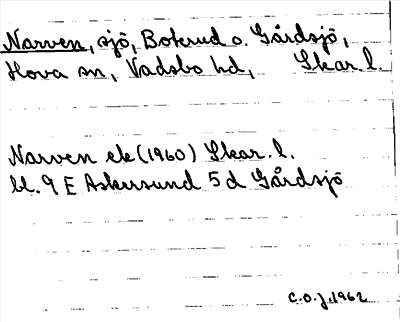 Narven, sjö, Boterud o. Gårdsjö,
Hova sn, Vadsbo hd, Skar. l.
Narven ek (1960) Skar. l.
bl. 9 E Askersund 5 d Gårdsjö
C.O.J. 1962